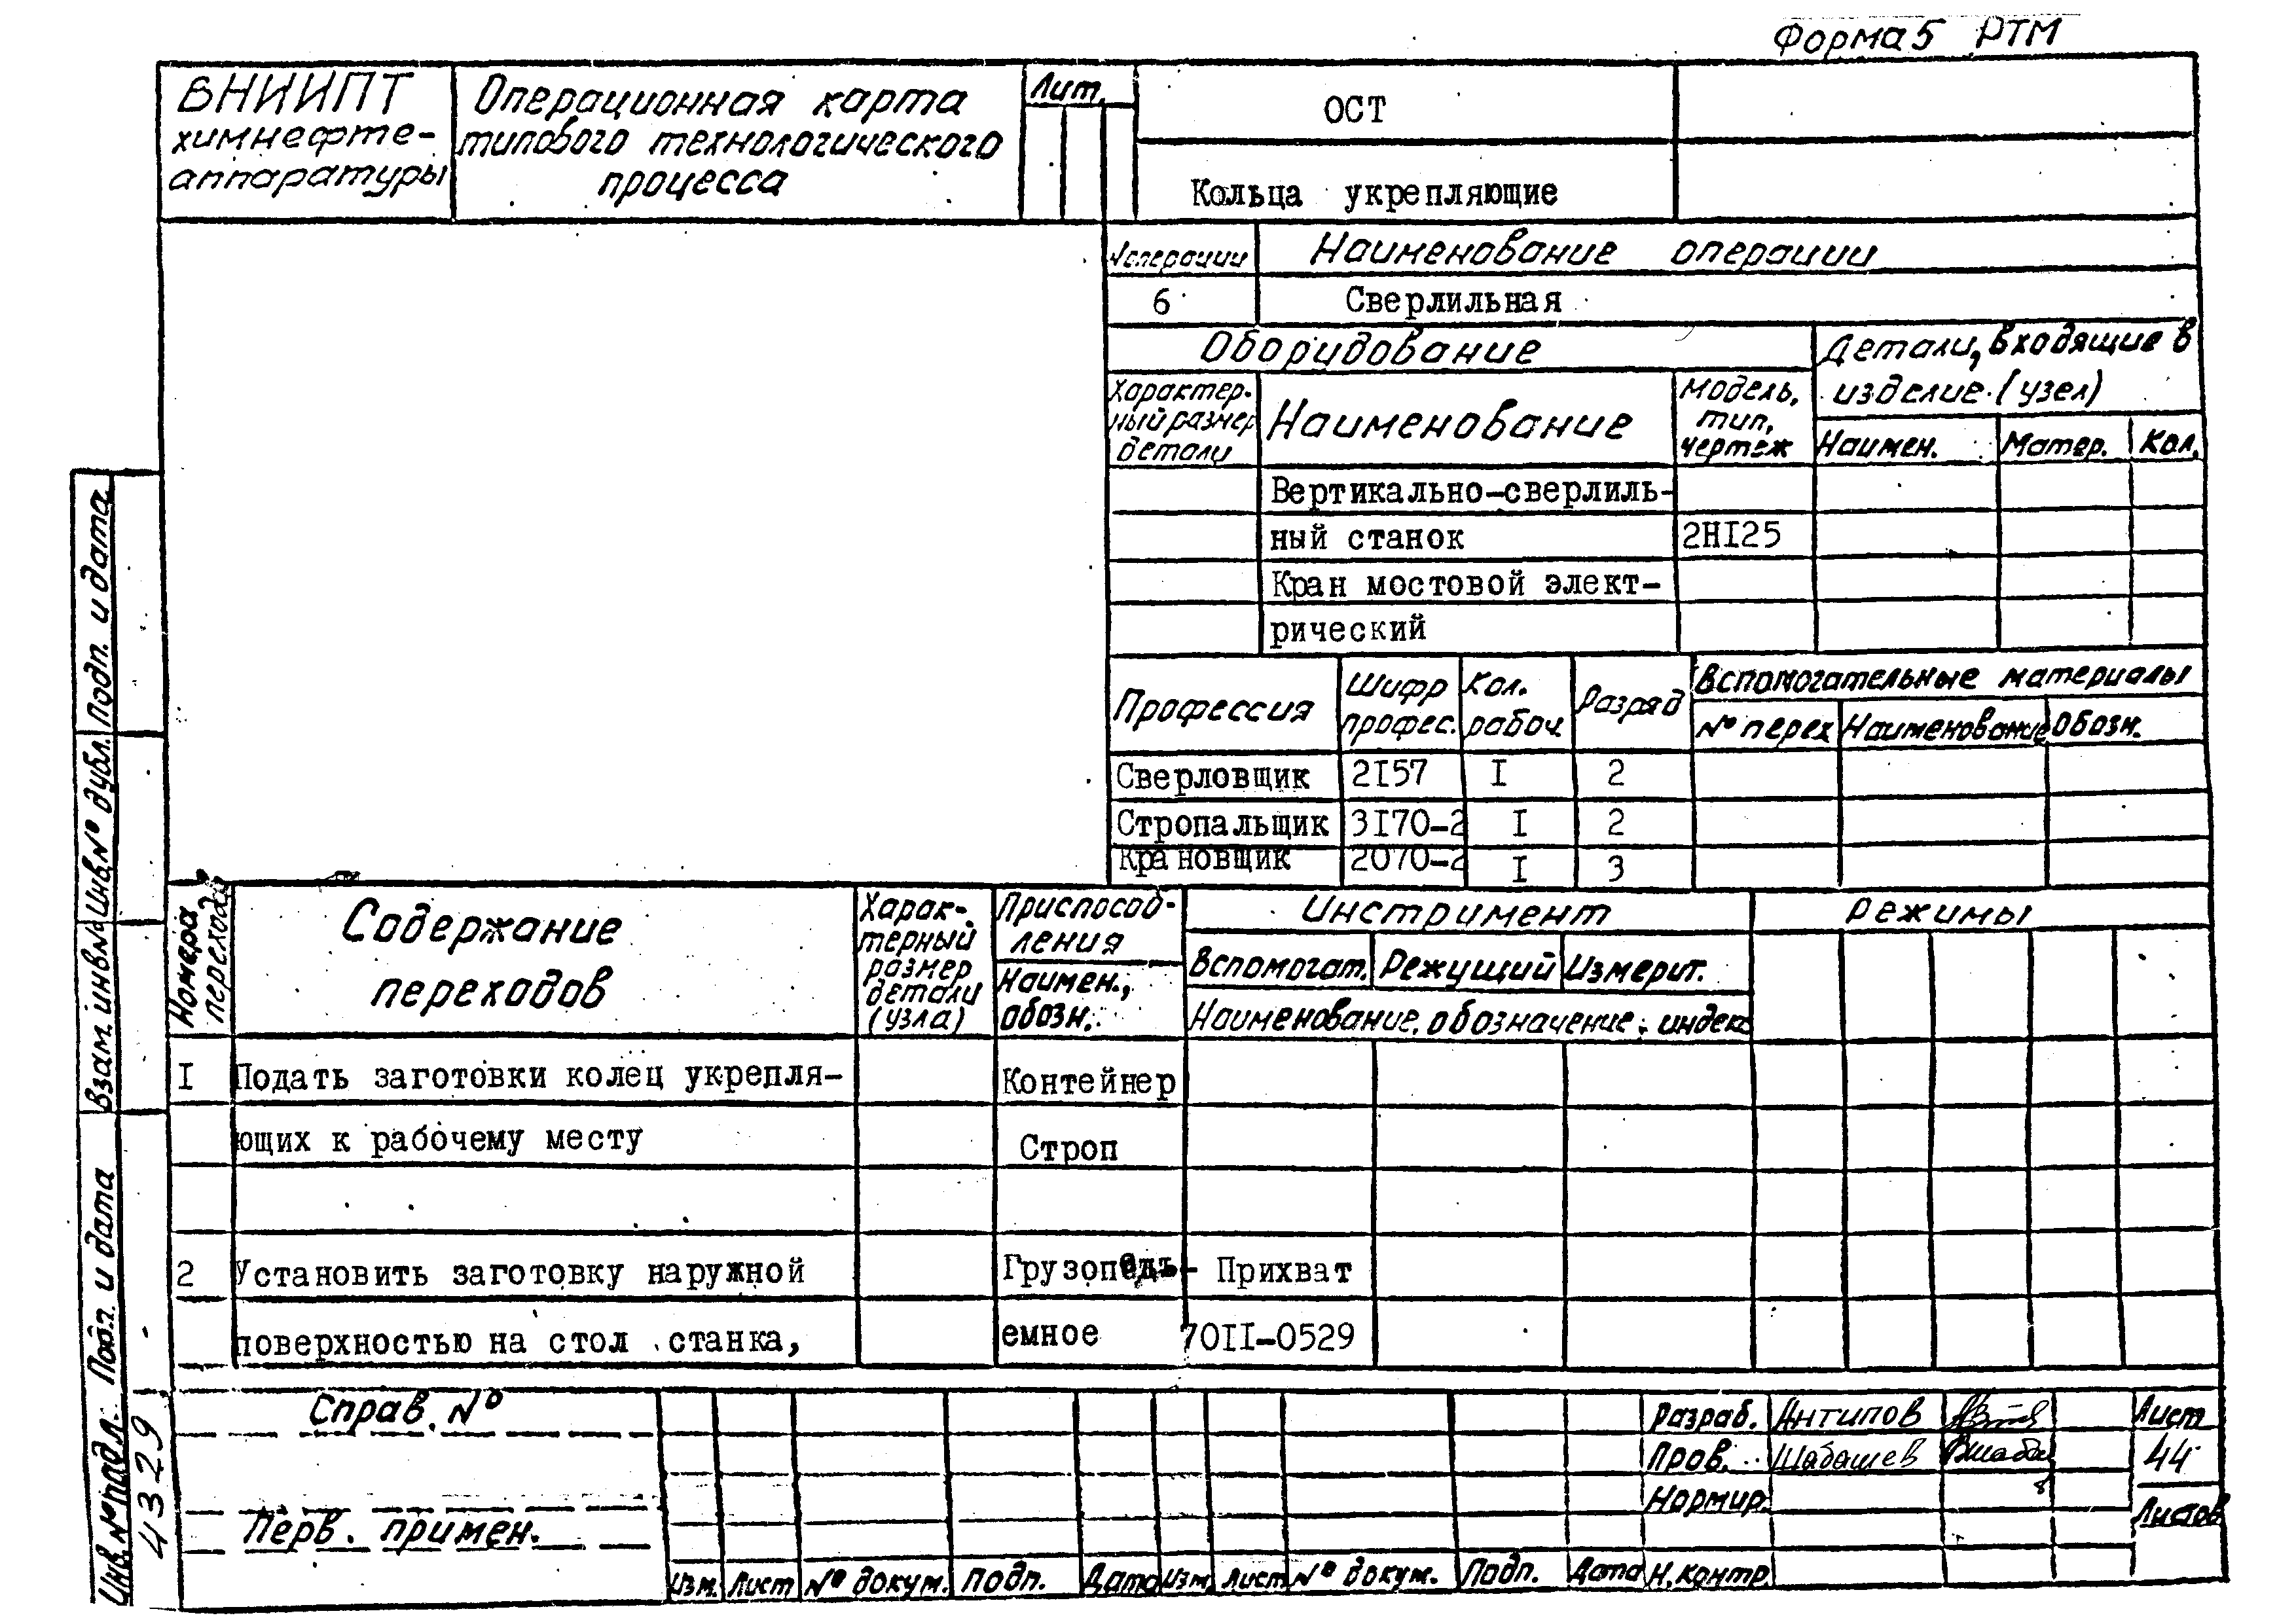 Форма 5 РТМ
ВНИИПТ
химнефте-
аппаратуры
Операционная карта
типового технологического
процесса
Лит.
ОСТ
Кольца укрепляющие
№ операции
Наименование операции
6
Сверлильная
Оборудование
Детали, входящие в
изделие (узел)
Характер-
ный размер
детали
Наименование
Модель,
тип,
чертеж
Наимен.
Матер.
Кол.
Вертикально-сверлиль-
ный станок
2НI25
Кран мостовой элект-
рический
Профессия
Шифр
профес.
Кол.
рабоч.
Разряд
Вспомогательные материалы
№ перех
Наименование
Обозн.
Сверловщик 2I57 I 2
Стропальщик 3I70-2 I 2
Крановщик 2070-2 I 3
Номера
перехода
Содержание
переходов
Харак-
терный
размер
детали
(узла)
Приспособ-
ления
Наимен.,
обозн.
Инструмент
Вспомогат.
Режущий
Измерит.
Наименование, обозначение, индекс
режимы
I Подать заготовки колец укрепля- Контейнер
ющих к рабочему месту Строп
2 Установить заготовку наружной Грузоподъ- Прихват
поверхностью на стол станка, емное 70II-0529
Справ. №
Перв. примен.
Изм. Лист № докум. Подп. Дата Изм. Лист № докум. Подп. Дата
Разраб. Антипов
Пров. Шабашев
Нормир.
Н. контр.
Лист
44
Листов
Подп. и дата
Инв. № дубл.
Взам. инв. №
Подп. и дата
Инв. № подл.
43291